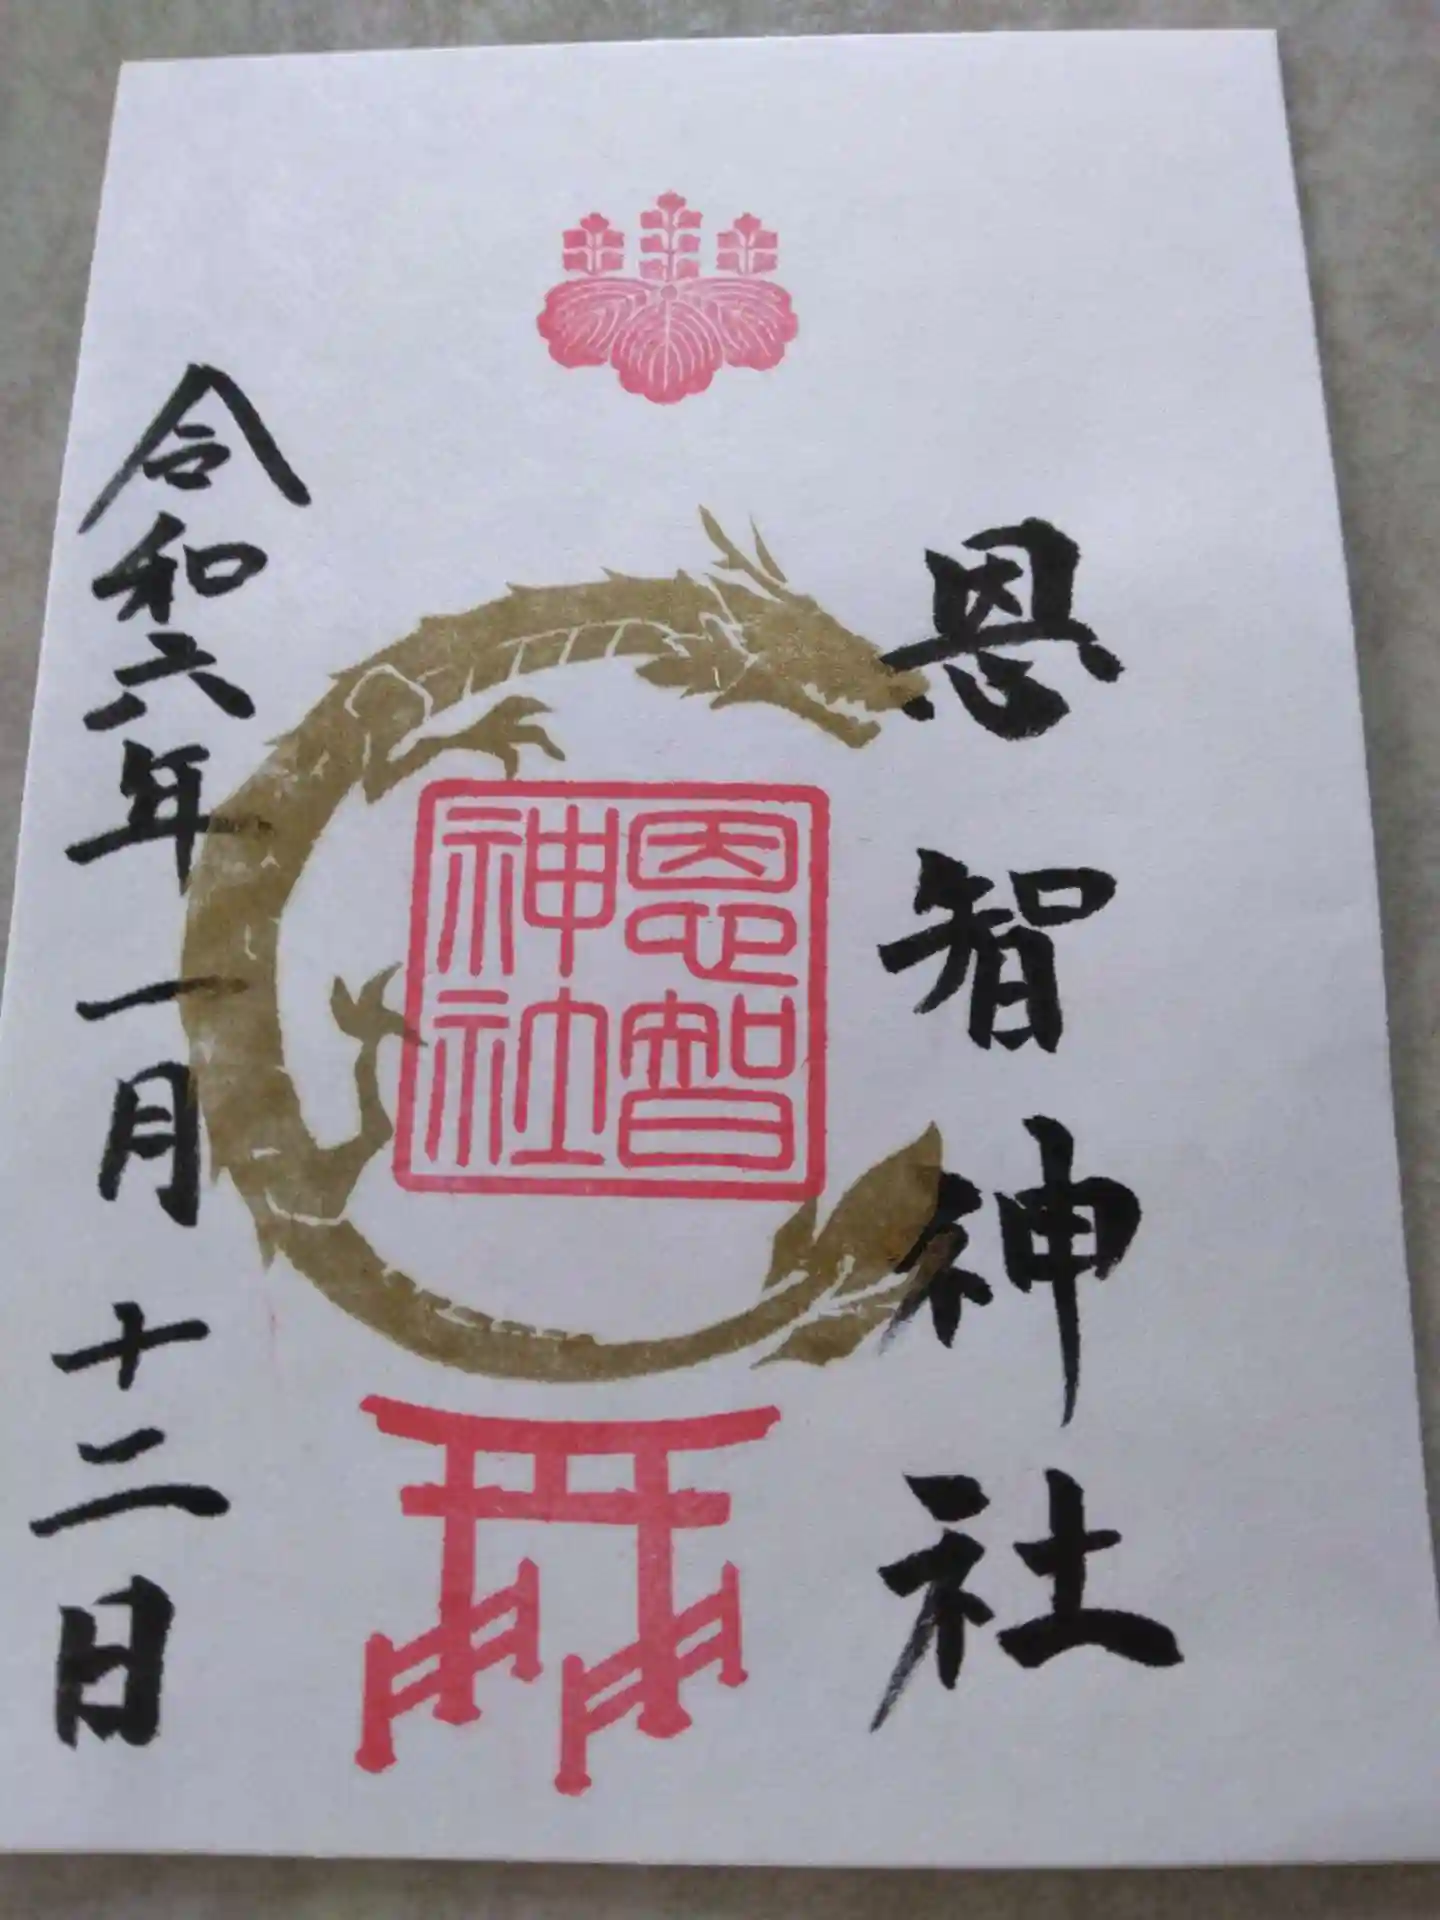 恩智神社
恩智
神社
令和六年一月十二日